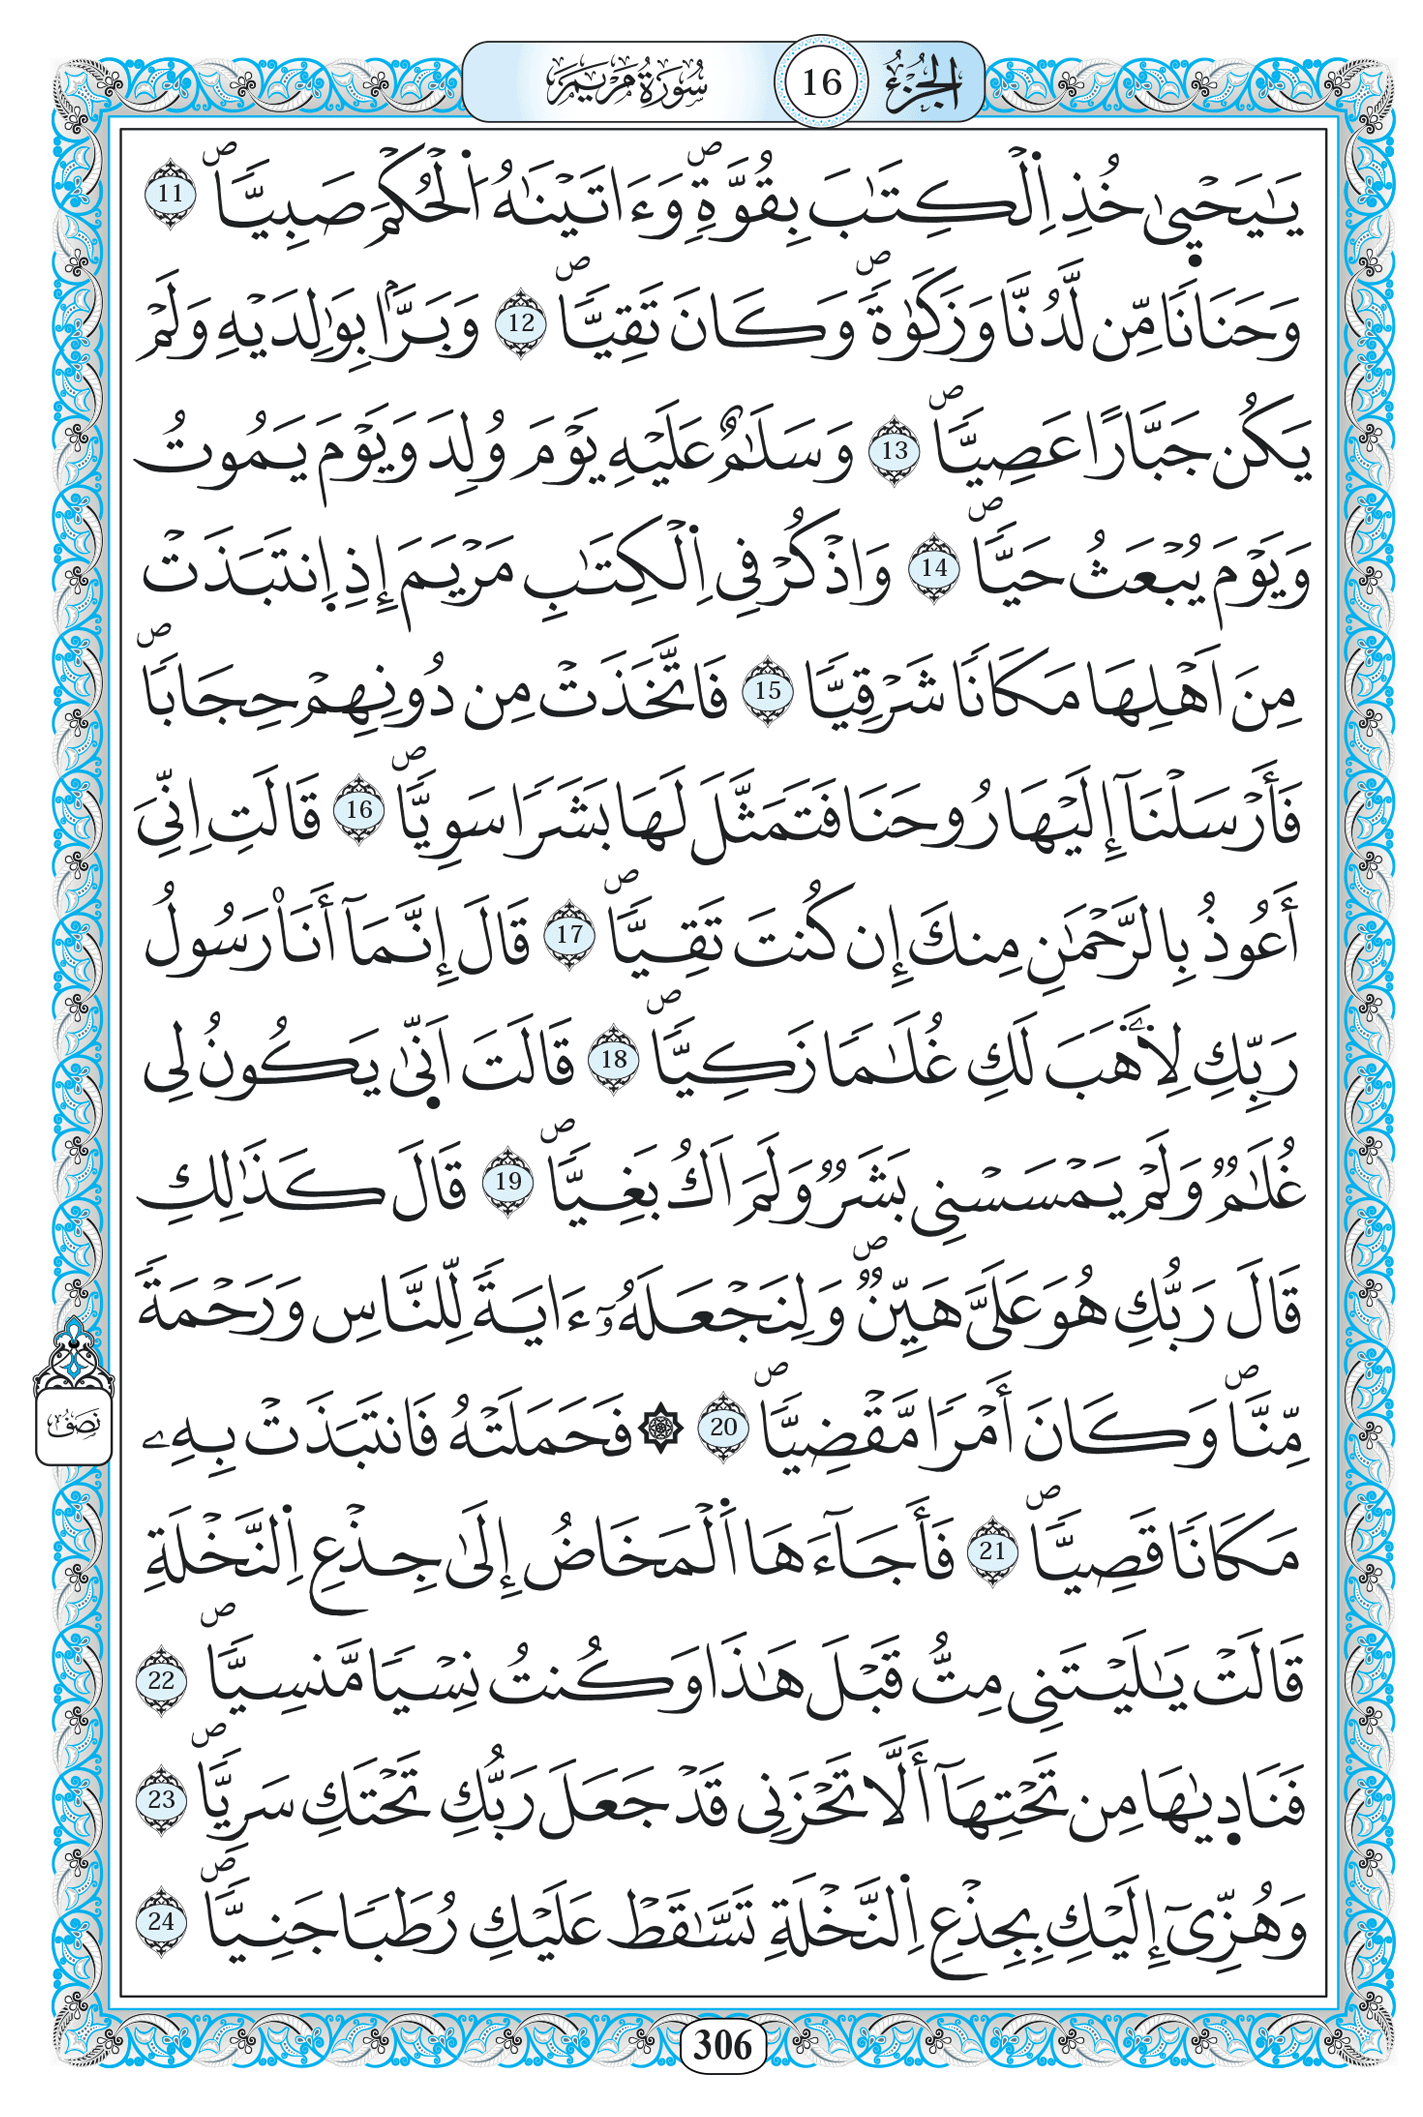 الجزء 16 سورة مريم
يَٰيَحْيىٰ خُذِ اِ۬لْكِتَٰبَ بِقُوَّةٖۖ وَءَاتَيْنَٰهُ اُ۬لْحُكْمَ صَبِيّاٗۖ 11
وَحَنَاناٗ مِّن لَّدُنَّا وَزَكَوٰةٗۖ وَكَانَ تَقِيّاٗۖ 12 وَبَرّاَۢ بِوَٰلِدَيْهِ وَلَمْ
يَكُن جَبَّاراً عَصِيّاٗۖ 13 وَسَلَٰمٌ عَلَيْهِ يَوْمَ وُلِدَ وَيَوْمَ يَمُوتُ
وَيَوْمَ يُبْعَثُ حَيّاٗۖ 14 وَاذْكُرْ فِي اِ۬لْكِتَٰبِ مَرْيَمَ إِذِ اِ۪نتَبَذَتْ
مِنَ اَهْلِهَا مَكَاناٗ شَرْقِيّاٗ 15 فَاتَّخَذَتْ مِن دُونِهِمْ حِجَاباٗۖ
فَأَرْسَلْنَآ إِلَيْهَا رُوحَنَا فَتَمَثَّلَ لَهَا بَشَراٗ سَوِيّاٗۖ 16 قَالَتِ اِنِّيَ
أَعُوذُ بِالرَّحْمَٰنِ مِنكَ إِن كُنتَ تَقِيّاٗۖ 17 قَالَ إِنَّمَآ أَنَا۠ رَسُولُ
رَبِّكِ لِأَهَبَ لَكِ غُلَٰماٗ زَكِيّاٗۖ 18 قَالَتَ اَنّ۪ىٰ يَكُونُ لِي
غُلَٰمٞ وَلَمْ يَمْسَسْنِي بَشَرٞ وَلَمَ اَكُ بَغِيّاٗۖ 19 قَالَ كَذَٰلِكِ
قَالَ رَبُّكِ هُوَ عَلَيَّ هَيِّنٞۖ وَلِنَجْعَلَهُۥٓ ءَايَةٗ لِّلنَّاسِ وَرَحْمَةٗ
مِّنَّاۖ وَكَانَ أَمْراٗ مَّقْضِيّاٗۖ 20 ۞ فَحَمَلَتْهُ فَانتَبَذَتْ بِهِۦ
مَكَاناٗ قَصِيّاٗۖ 21 فَأَجَآءَهَا اَ۬لْمَخَاضُ إِلَىٰ جِذْعِ اِ۬لنَّخْلَةِ
قَالَتْ يَٰلَيْتَنِي مِتُّ قَبْلَ هَٰذَا وَكُنتُ نِسْياٗ مَّنسِيّاٗۖ 22
فَنَاد۪يٰهَا مِن تَحْتِهَآ أَلَّا تَحْزَنِي قَدْ جَعَلَ رَبُّكِ تَحْتَكِ سَرِيّاٗۖ 23
وَهُزِّيٓ إِلَيْكِ بِجِذْعِ اِ۬لنَّخْلَةِ تَسَّٰقَطْ عَلَيْكِ رُطَباٗ جَنِيّاٗۖ 24
نصف
306